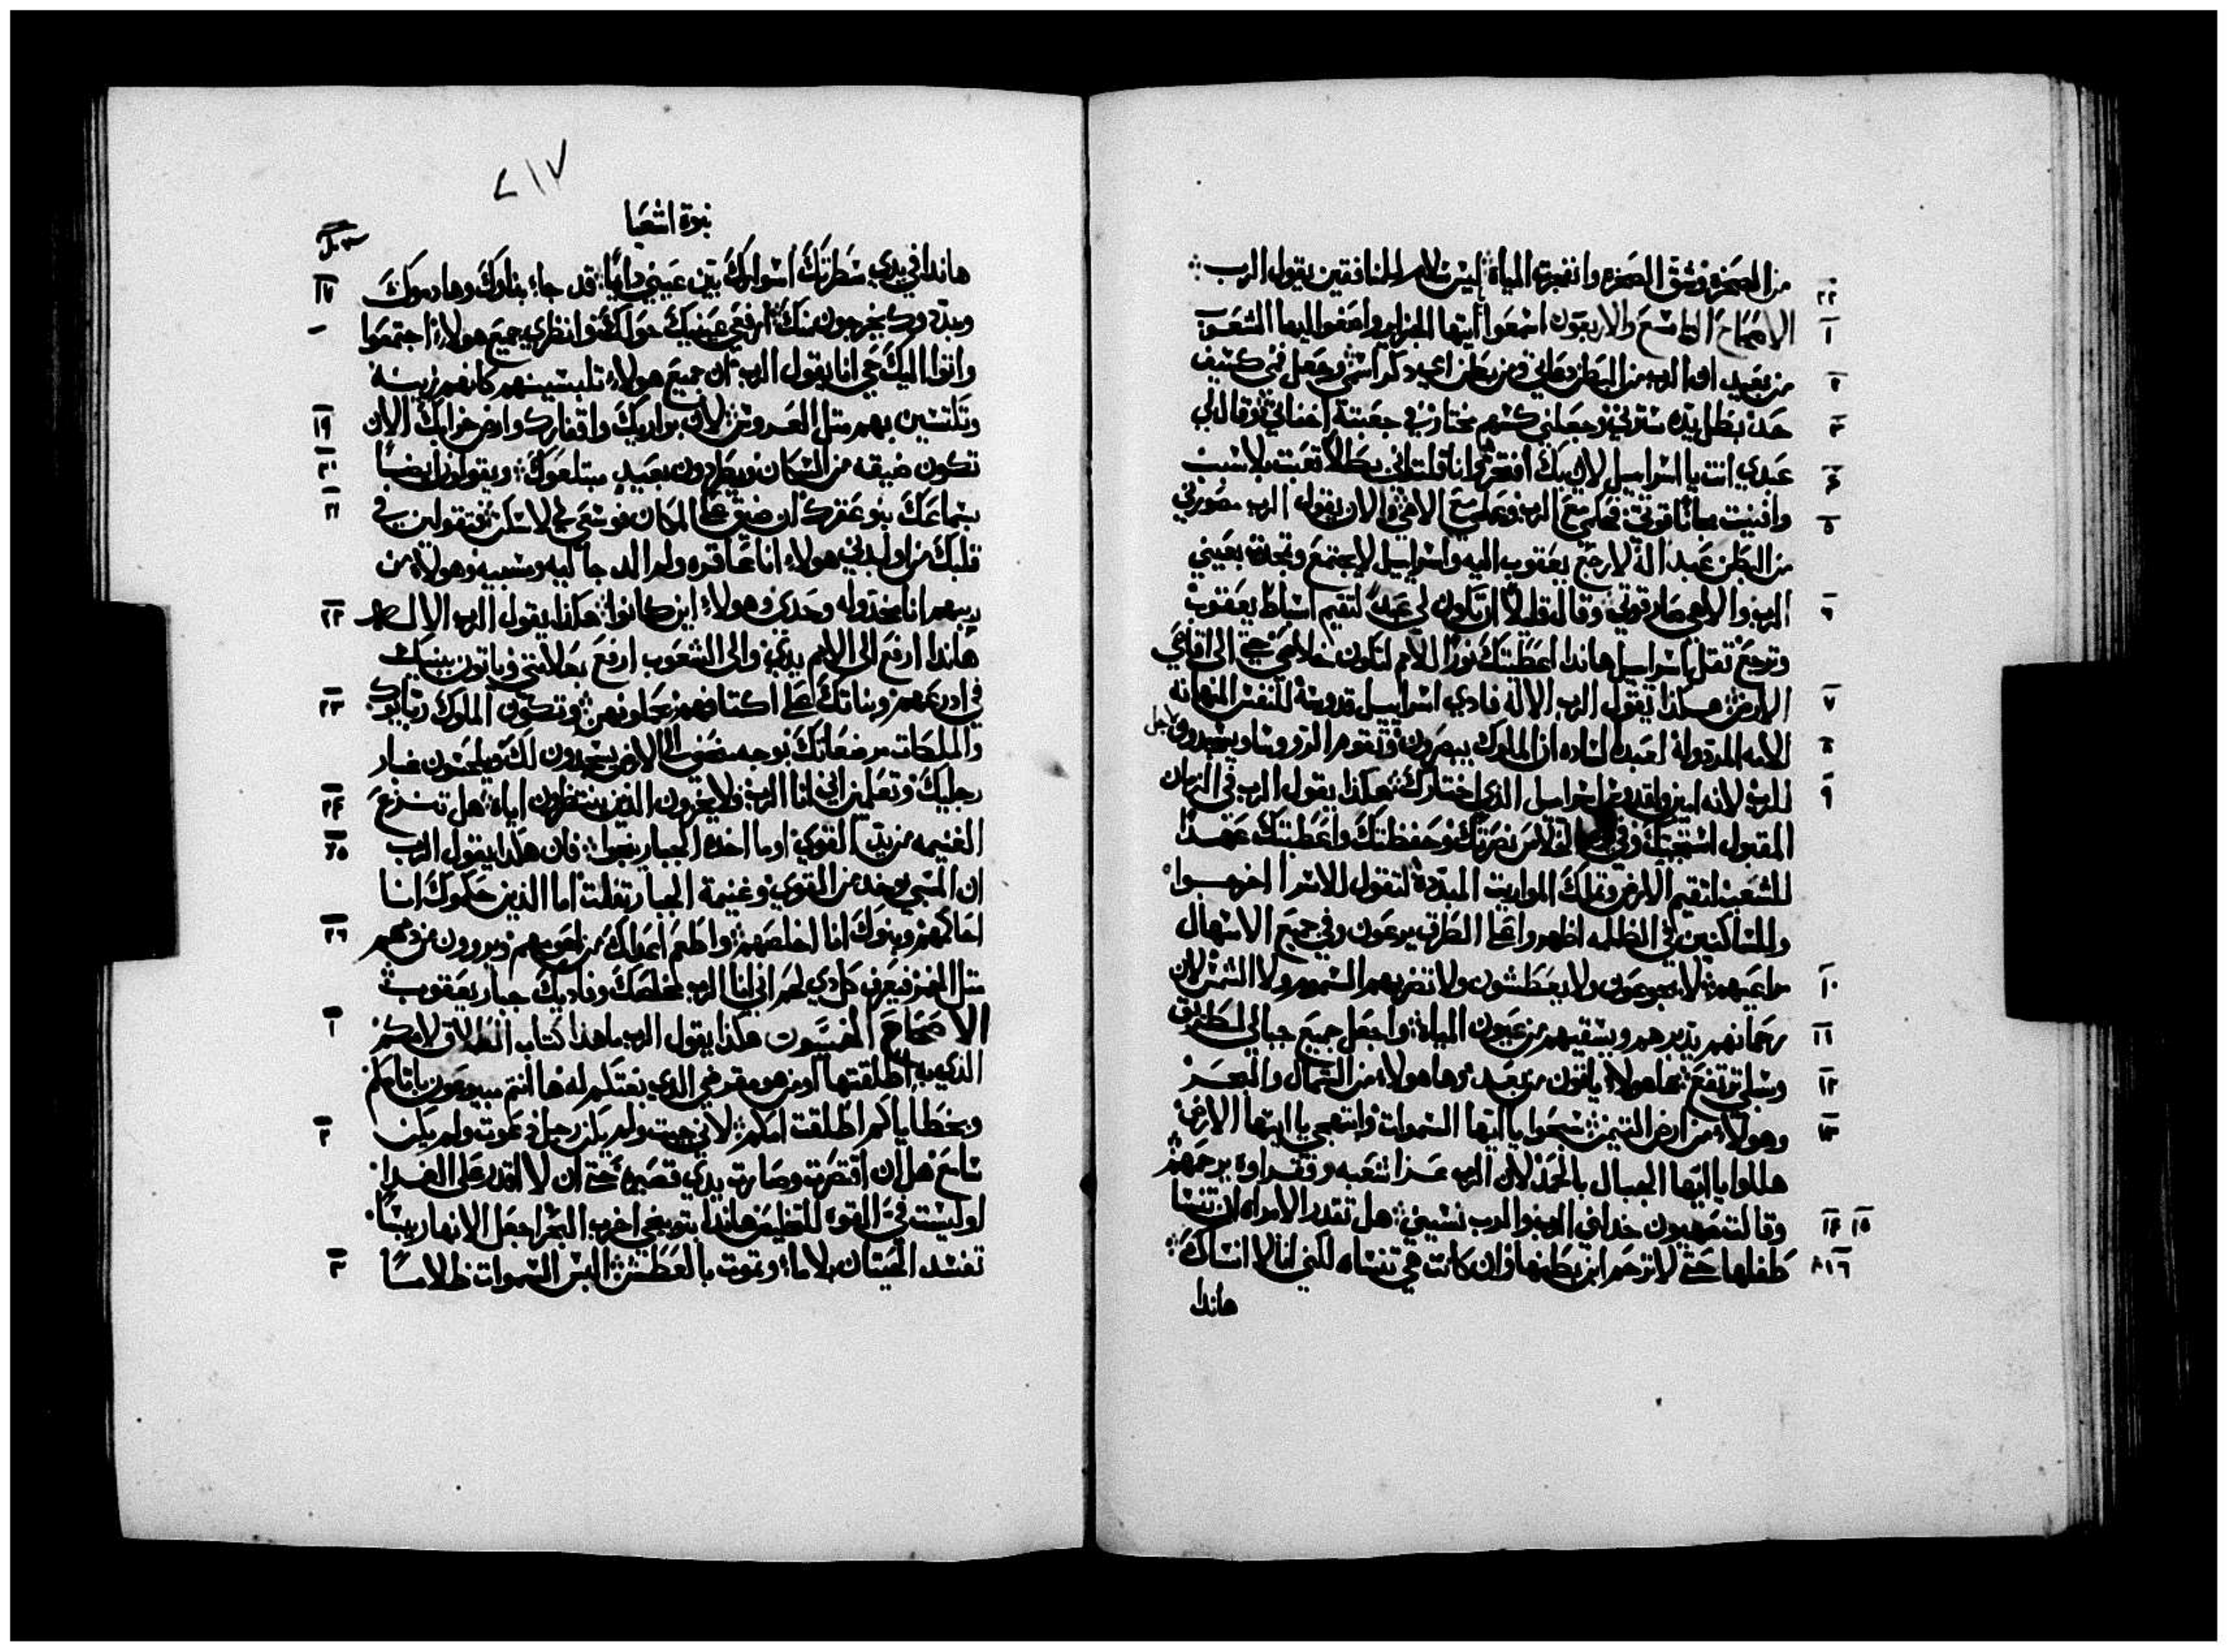 من الصخره وشق الصخره وانفجرت المياه ليس سلام للمنافقين يقول الرب
٢٢
الاصحاح التاسع والاربعون اسمعوا ايتها الجزاير واصغوا ايها الشعوب
١
من بعيد الرب من البطن دعاني ومن بطن امي ذكر اسمي وجعل فمي كسيف
٢
حد بظل يده سترني وجعلني كسهم مختار في جعبته اخفاني وقال لي
٣
عبدي انت يا اسراييل لاني بك افتخر وانا قلت اني بطالا تعبت بلا سبب
٤
وافنيت قوتي فحكمي مع الرب وعملي مع الاهي والان يقول الرب مصورني
٥
من البطن عبدا له لارجع يعقوب اليه واسراييل لا يجتمع وتمجدت بعيني
الرب والاهي صار قوتي وقال قليلا ان تكون لي عبدا لتقيم اسباط يعقوب
٦
وترجع تفل اسراييل هاندا اعطيتك نورا للامم لتكون خلاصي حتي الى اقاصي
الارض هكذا يقول الرب الاله فادي اسراييل قدوسه للنفس المهانه
٧
الامه المردوله لعبد الساده ان الملوك يبصرون وتقوم الروسا ويسجدون لاجل
٨
للرب لانه امين ولقدوس اسراييل الذي اختارك هكذا يقول الرب في الزمان
٩
المقبول استجبتك وفي يوم الخلاص نصرتك وحفظتك واعطيتك عهدا
للشعب لتقيم الارض وتملك المواريت المبدده لتقول للاسرا اخرجوا
وللساكنين في الظلمه اظهروا على الطرق يرعون وفي جميع الاسهال
مراعيهم لا يجوعون ولا يعطشون ولا تضربهم السموم ولا الشمس لان
١٠
رحمانهم يدبرهم ويسقيهم من عيون المياه واجعل جميع جبالي لطريق
١١
وسبلي ترتفع ها هولاء ياتون من بعيد وها هولاء من الشمال والبحر
١٢
وهولاء من ارض التيمن سبحوا يا ايتها السموات وابتهجي يا ايتها الارض
١٣
هللوا يا ايتها الجبال بالحمد لان الرب عزا شعبه وفقراوه يرحمهم
وقالت صهيون خذلني الرب والرب نسيني هل تقدر الامراه ان تنسا
١٤ ١٥
طفلها حتى لا ترحم ابن بطنها وان كانت هي تنساه لكني انا لا انساك
١٦
هاندا
٢١٧
نبوة اشعيا
هاندا في يدي سطرتك اسوارك بين عيني دايما قد جاء بناوك وهادموك
١٧
ومبددوك يخرجون منك ارفعي عينيك حواليك وانظري جميع هولاء اجتمعوا
واتوا اليك حي انا يقول الرب ان جميع هولاء تلبسينهم كانهم زينة
وتلتسين بهم متل العروس لان براريك واقفارك وارض خرابك الان
١٩
تكون ضيقه من السكان ويطردون بعيد مبتلعوك ويقولون ايضا
٢٠
بنو عقرك ان ضيق علي المكان فوسعي لي لاسكن فتقولين في
٢١
قلبك من اولدني هولاء انا عاقره ولم الد جاليه ومسبيه وهولاء من
ربيهم انا مخذوله وحدي وهولاء اين كانوا هكذا يقول الرب الاله
٢٢
هاندا ارفع الى الامم يدي والى الشعوب ارفع علامتي وياتون ببنيك
في ادرعهم وبناتك على اكتافهم يحملونهن وتكون الملوك رباتك
٢٣
والملكات مرضعاتك بوجه منخفض الى الارض يسجدون لك ويلحسون غبار
رجليك وتعلمين اني انا الرب ولا يخزون الذين ينتظرون اياه هل تنزع
٢٤
الغنيمه من يد القوي او ما اخذه الجبار ينجوا فان هكذا يقول الرب
٢٥
ان السبي يوخذ من القوي وغنيمة الجبار تفلت اما الذين حكموك انا
احاكمهم وبنوك انا اخلصهم واطعم اعداك من لحومهم ويروون من دمهم
٢٦
متل الخمر فيعرف كل ذي لحم اني انا الرب مخلصك وفاديك جبار يعقوب
الاصحاح الخمسون هكذا يقول الرب ما هذا كتاب الطلاق لامكم
١
الذي به اطلقتها او من هو مقرضي الذي بعتكم له ها انتم مبيوعون باتامكم
وبخطاياكم اطلقت امكم لاني جيت ولم يكن رجل دعوت ولم يكن
٢
سامع هل ان اقتصرت وصارت يدي قصيره حتى ان لا اقدر على الفدا
او ليست في القوه للتخليص هاندا بتوبيخي اخرب البحر اجعل الانهار يبسا
تفسد الحيتان بلا ماء وتموت بالعطش البس السموات ظلاما
٣